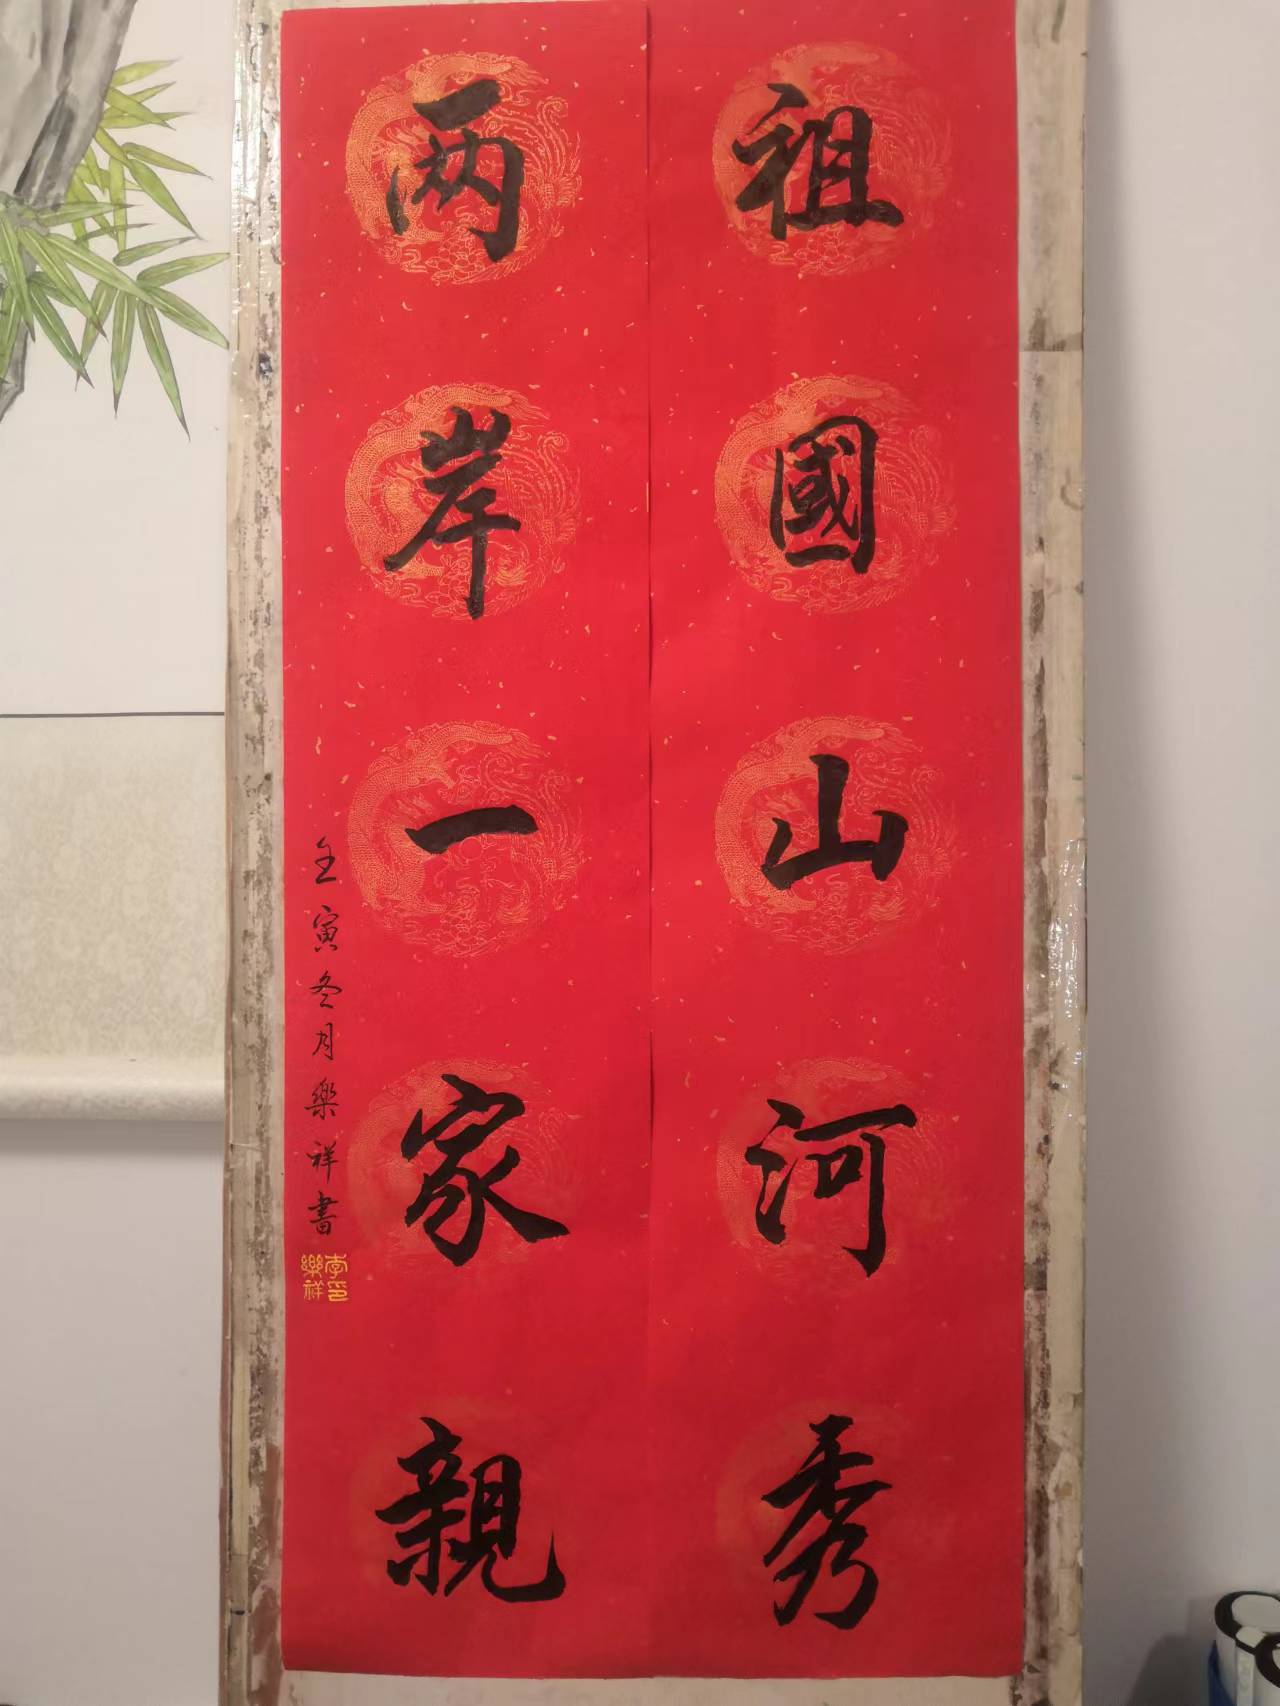 祖國山河秀
两岸一家親
壬寅冬月樂祥書
李印
樂祥